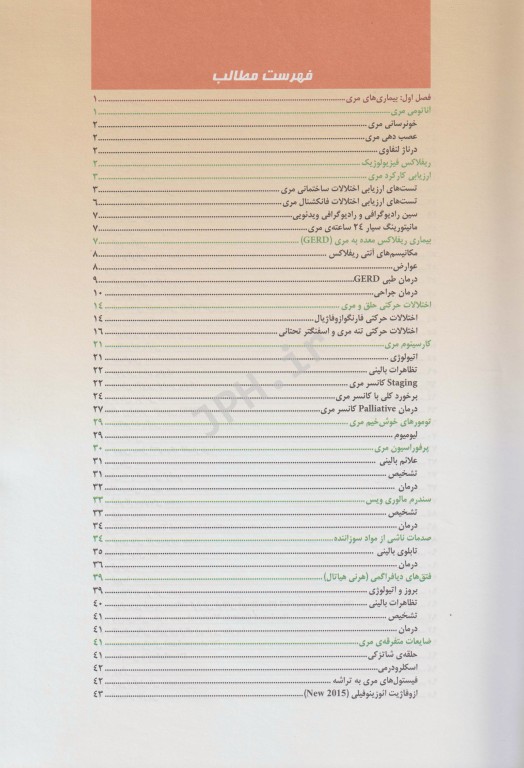 فهرست مطالب
فصل اول: بیماری‌های مری ..... ۱
آناتومی مری ..... ۱
خونرسانی مری ..... ۲
عصب دهی مری ..... ۲
درناژ لنفاوی ..... ۲
ریفلاکس فیزیولوژیک ..... ۲
ارزیابی کارکرد مری ..... ۳
تست‌های ارزیابی اختلالات ساختمانی مری ..... ۳
تست‌های ارزیابی اختلالات فانکشنال مری ..... ۶
سین رادیوگرافی و رادیوگرافی ویدئویی ..... ۷
مانیتورینگ سیار ۲۴ ساعته‌ی مری ..... ۷
بیماری ریفلاکس معده به مری (GERD) ..... ۷
مکانیسم‌های آنتی ریفلاکس ..... ۸
عوارض ..... ۸
درمان طبی GERD ..... ۹
درمان جراحی ..... ۱۰
اختلالات حرکتی حلق و مری ..... ۱۴
اختلالات حرکتی فارنگوازوفاژیال ..... ۱۴
اختلالات حرکتی تنه مری و اسفنگتر تحتانی ..... ۱۶
کارسینوم مری ..... ۲۱
اتیولوژی ..... ۲۱
تظاهرات بالینی ..... ۲۲
Staging کانسر مری ..... ۲۲
برخورد کلی با کانسر مری ..... ۲۴
درمان Palliative کانسر مری ..... ۲۷
تومورهای خوش‌خیم مری ..... ۲۹
لیومیوم ..... ۲۹
پرفوراسیون مری ..... ۳۰
علائم بالینی ..... ۳۱
تشخیص ..... ۳۱
درمان ..... ۳۲
سندرم مالوری ویس ..... ۳۳
تشخیص ..... ۳۳
درمان ..... ۳۴
صدمات ناشی از مواد سوزاننده ..... ۳۴
تابلوی بالینی ..... ۳۵
درمان ..... ۳۶
فتق‌های دیافراگمی (هرنی هیاتال) ..... ۳۹
بروز و اتیولوژی ..... ۳۹
تظاهرات بالینی ..... ۴۰
تشخیص ..... ۴۱
درمان ..... ۴۱
ضایعات متفرقه‌ی مری ..... ۴۱
حلقه‌ی شاتزکی ..... ۴۱
اسکلرودرمی ..... ۴۲
فیستول‌های مری به تراشه ..... ۴۲
ازوفاژیت ائوزینوفیلی (New 2015) ..... ۴۳
JPH.ir